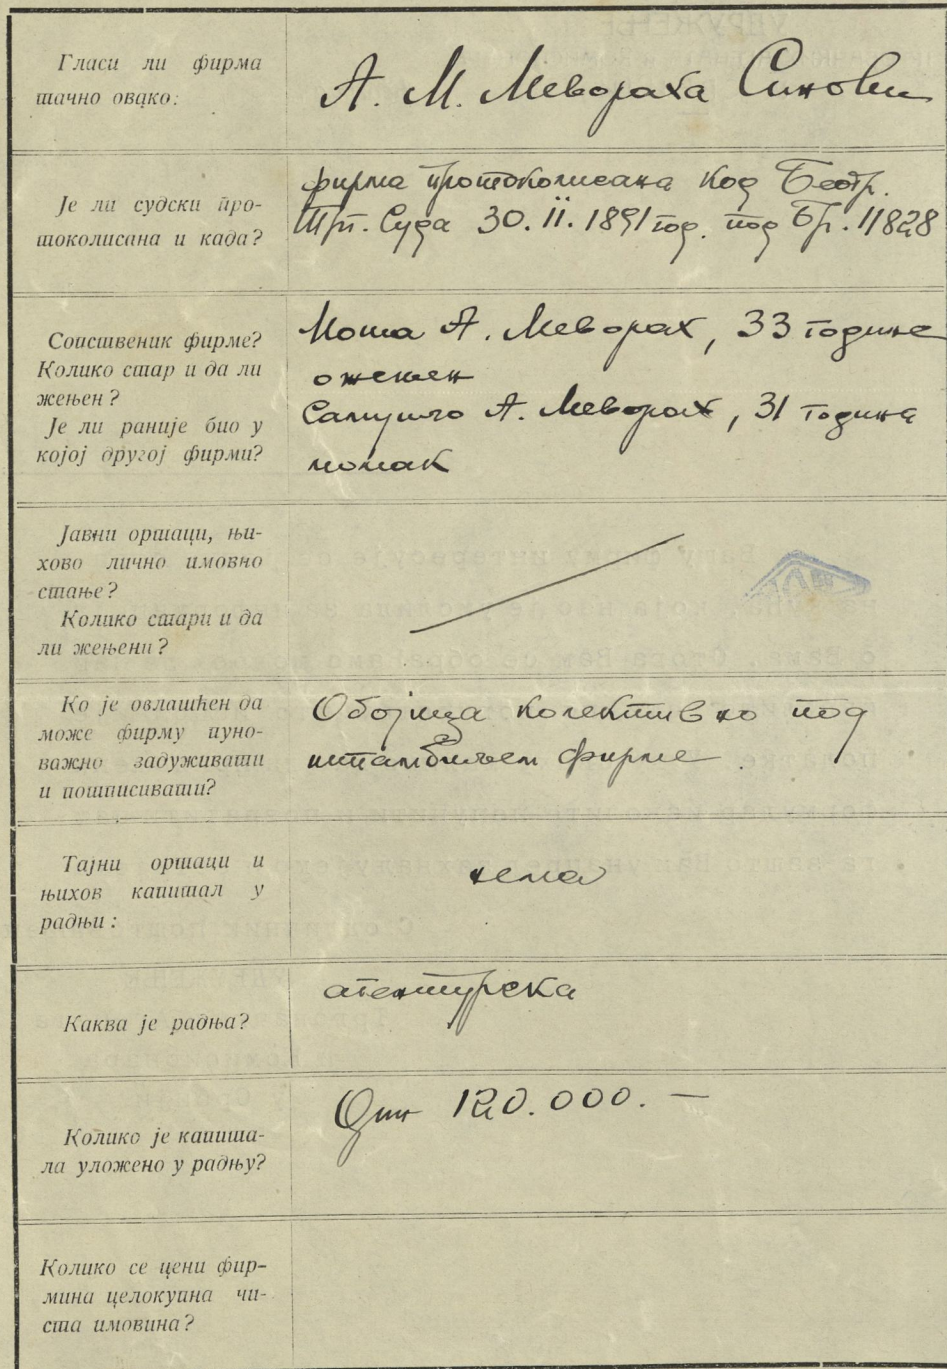 Гласи ли фирма
тачно овако:
А. М. Мевораха Синови
Је ли судски про-
токолисана и када?
фирма протоколисана код Беогр.
Трг. Суда 30. II. 1891 год. под Бр. 11828
Сопственик фирме?
Колико стар и да ли
жењен?
Је ли раније био у
којој другој фирми?
Моша А. Меворах, 33 године
ожењен
Самуило А. Меворах, 31 година
момак
Јавни ортаци, њи-
хово лично имовно
стање?
Колико стари и да
ли жењени?
Ко је овлашћен да
може фирму пуно-
важно задуживати
и потписивати?
Обојица колективно под
штамбиљем фирме.
Тајни ортаци и
њихов капитал у
радњи:
нема
Каква је радња?
агентурска
Колико је капита-
ла уложено у радњу?
Дин 120.000.—
Колико се цени фир-
мина целокупна чи-
ста имовина?